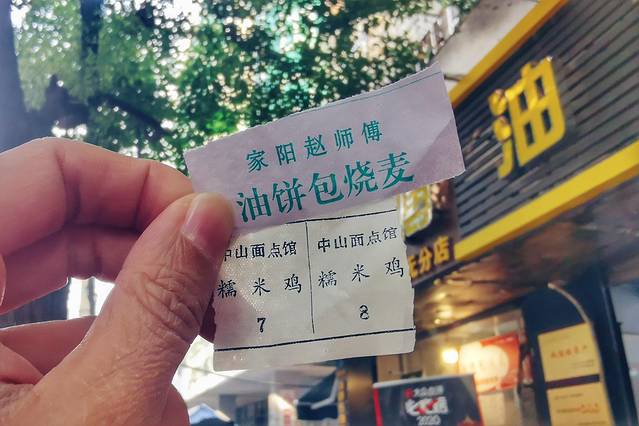 家阳赵师傅
油饼包烧麦
中山面点馆 中山面点馆
糯米鸡 糯米鸡
7 8
油
分店
2020